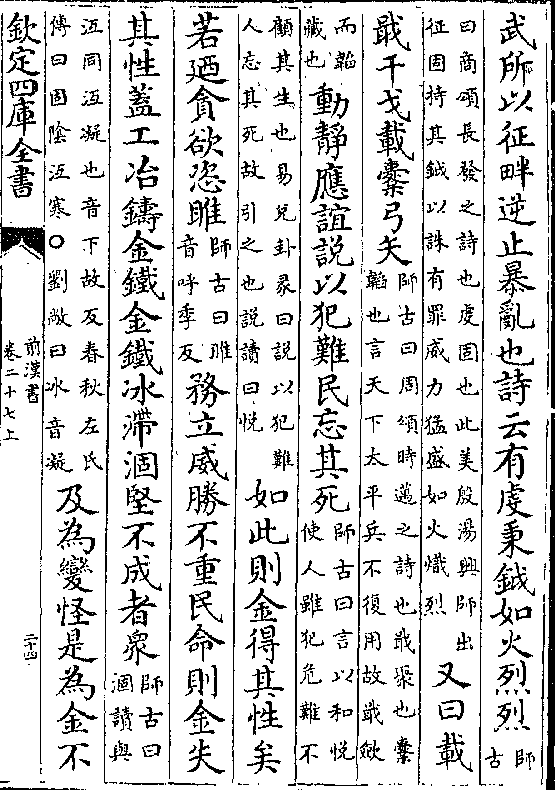 武所以征畔逆止暴亂也詩云有虔秉鉞如火烈烈師古
曰商頌長發之詩也虔固也此美殷湯興師出
征固持其鉞以誅有罪威力猛盛如火熾烈
又曰載
戢干戈載櫜弓矢
師古曰周頌時邁之詩也戢聚也櫜
韜也言天下太平兵不復用故戢斂
而韜
藏也
動靜應誼說以犯難民忘其死
師古曰言以和悅
使人雖犯危難不
顧其生也易兌卦彖曰說以犯難
人忘其死故引之也說讀曰悅
如此則金得其性矣
若廼貪欲恣睢
師古曰睢
音呼季反
務立威勝不重民命則金失
其性蓋工冶鑄金鐵金鐵冰滯涸堅不成者衆
師古曰
涸讀與
沍同沍凝也音下故反春秋左氏
傳曰固陰沍寒○劉敞曰冰音凝
及為變怪是為金不
欽定四庫全書
前漢書
卷二十七上
二十四